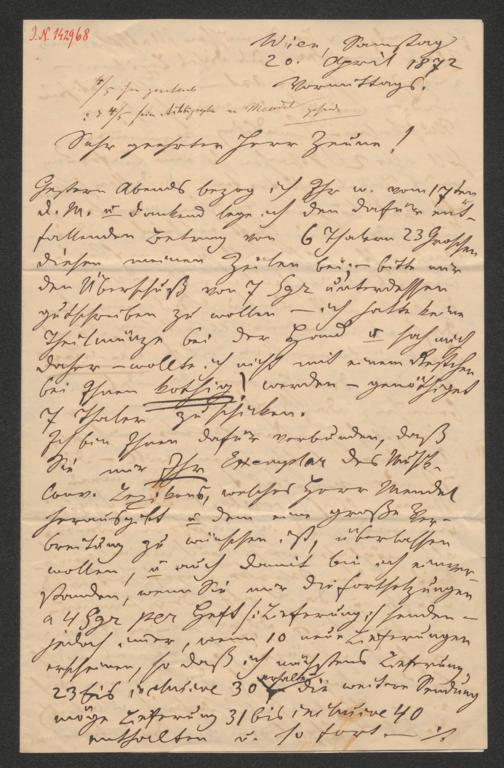 I.N. 142968
Wien, Samstag
20. April 1872
Vormittags.
Sehr geehrter Herr Zeune!
Gestern Abends bezog ich Ihr w. vom 17ten
d. M. u dankend lege ich den dafür ent-
fallenden Betrag von 6 Thalern 23 Groschen
diesen meinen Zeilen bei, – bitte mir
den Überschuß von 7 Sgr unterdessen
gutschreiben zu wollen – ich hatte keine
Theilmünze bei der Hand u sah mich
daher – wollte ich nicht mit einem Restchen
bei Ihnen kothig! werden – genöthiget
7 Thaler zu schicken.
Ich bin Ihnen dafür verbunden, daß
Sie mir Ihr Exemplar des Musik-
Conv. Lexikons, welches Herr Mendel
herausgibt u dem eine große Ver-
breitung zu wünschen ist, überlassen
wollen, u auch damit bin ich einver-
standen, wenn Sie mir die Fortsetzungen
a 4 Sgr per Heft /: Lieferung :/ senden –
jedoch immer, wenn 10 neue Lieferungen
erscheinen, so daß ich nächstens Lieferung
23 bis inclusive 30 erhalte, die weitere Sendung
möge Lieferung 31 bis inclusive 40
enthalten u. so fort. – ./.